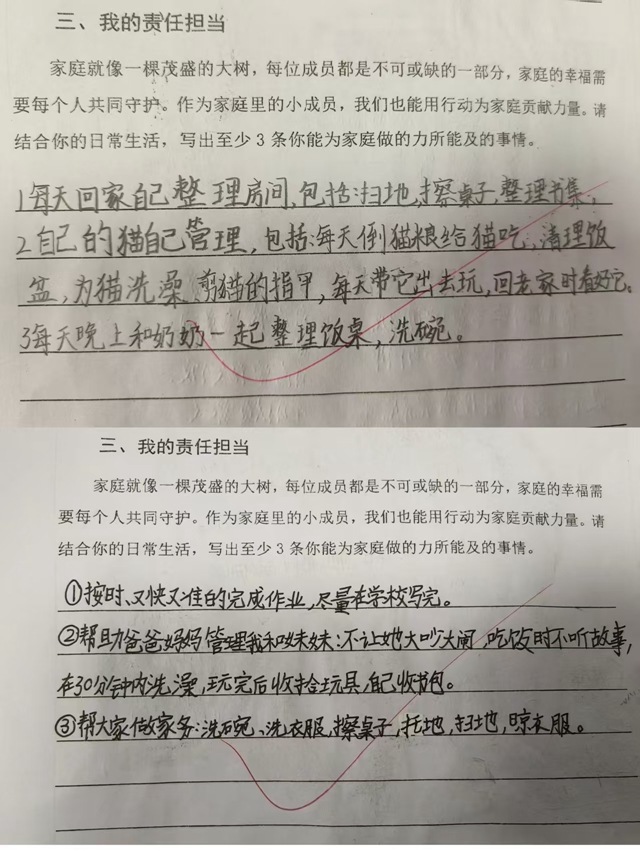 三、我的责任担当
家庭就像一棵茂盛的大树，每位成员都是不可或缺的一部分，家庭的幸福需
要每个人共同守护。作为家庭里的小成员，我们也能用行动为家庭贡献力量。请
结合你的日常生活，写出至少 3 条你能为家庭做的力所能及的事情。
1每天回家自己整理房间，包括:扫地，擦桌子，整理书集，
2自己的猫自己管理，包括:每天倒猫粮给猫吃，清理饭
盆，为猫洗澡，剪猫的指甲，每天带它出去玩，回老家时看好它。
3每天晚上和奶奶一起整理饭桌，洗碗。
三、我的责任担当
家庭就像一棵茂盛的大树，每位成员都是不可或缺的一部分，家庭的幸福需
要每个人共同守护。作为家庭里的小成员，我们也能用行动为家庭贡献力量。请
结合你的日常生活，写出至少 3 条你能为家庭做的力所能及的事情。
①按时、又快又准的完成作业，尽量在学校写完。
②帮助爸爸妈妈管理我和妹妹:不让她大吵大闹，吃饭时不听故事，
在30分钟内洗澡，玩完后收拾玩具，自己收书包。
③帮大家做家务:洗碗、洗衣服，擦桌子，拖地，扫地，晾衣服。